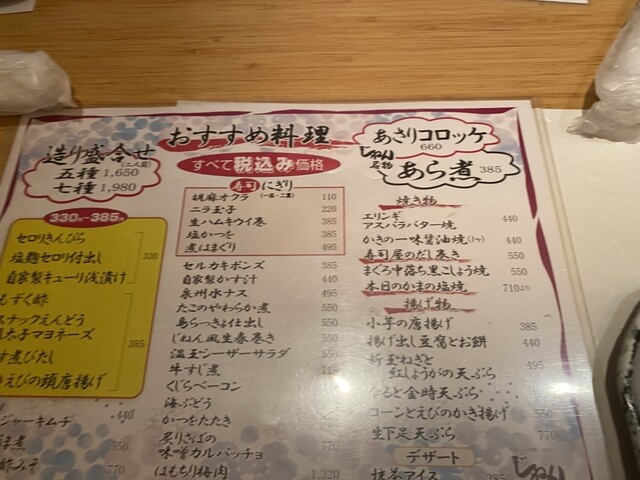 おすすめ料理
すべて税込み価格
造り盛合せ
(二人前)
五種 1,650
七種 1,980
あさりコロッケ
660
じねん名物
あら煮 385
330円~385円
セロリきんぴら
塩麹セロリ付出し
自家製キューリ浅漬け
330
もずく酢
スナックえんどう
太子マヨネーズ
煮びたし
えびの頭唐揚げ
385
ジャーキムチ 440
煮 550
酢みそ 770
寿司 にぎり
胡麻オクラ 110
ニラ玉子 220
生ハムキウイ巻 385
塩かつを 385
煮はまぐり 495
セルカキポンズ 385
自家製かす汁 440
泉州水ナス 495
たこのやわらか煮 550
島らっきょ仕出し 550
じねん風生春巻き 550
温玉シーザーサラダ 550
牛すじ煮
くじらベーコン
海ぶどう
かつをたたき
炙りさばの
味噌カルパッチョ 770
はもちり梅肉 1,320
焼き物
エリンギ
アスパラバター焼 440
かきの一味醤油焼(1ケ) 440
寿司屋のだし巻き 550
まぐろ中落ち黒こしょう焼 550
本日のかまの塩焼 710より
揚げ物
小芋の唐揚げ 385
揚げ出し豆腐とお餅 440
新玉ねぎと
紅しょうがの天ぷら 495
なると金時天ぷら 495
コーンとえびのかき揚げ 550
生下足天ぷら 770
デザート
抹茶アイス 385
じねん